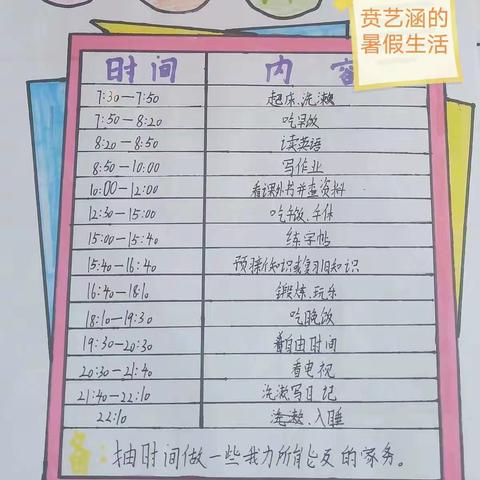 贲艺涵的
暑假生活
时间 内容
7:30—7:50 起床、洗漱
7:50—8:20 吃早饭
8:20—8:50 读英语
8:50—10:00 写作业
10:00—12:00 看课外书并查资料
12:30—15:00 吃午饭、午休
15:00—15:40 练字帖
15:40—16:40 预习新知识或复习旧知识
16:40—18:10 锻炼、玩乐
18:10—19:30 吃晚饭
19:30—20:30 自由时间
20:30—21:40 看电视
21:40—22:10 洗漱写日记
22:10 洗漱、入睡
备:抽时间做一些我力所能及的家务。